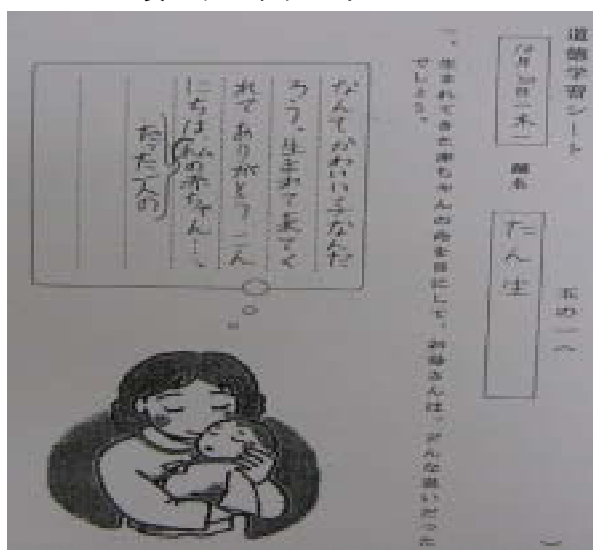 道徳学習シート
五の一(
)
題名
たん生
一、生まれてきた謙ちゃんの命を目にして、お母さんは、どんな思いだった
でしょう。
なんてかわいい子なんだ
ろう。生まれて来てく
れてありがとう。こん
にちは私の赤ちゃん…。
たった一人の